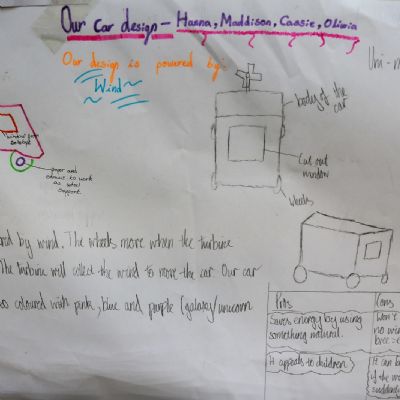 Our Car design - Hanna, Maddison, Cassie, Olivia
Our design is powered by:
Wind
Uni-
body of the
car
Cut out
window
wheels
window from
paper and
to work
as
support
by wind. The wheels move when the turbine
The turbine will collect the wind to move the car. Our car
coloured with pink, blue and purple (galaxy/unicorn
Pros
Cons
Saves energy by using
something natural.
Won't
no win
It appeals to children
It can b
if the
suddenly